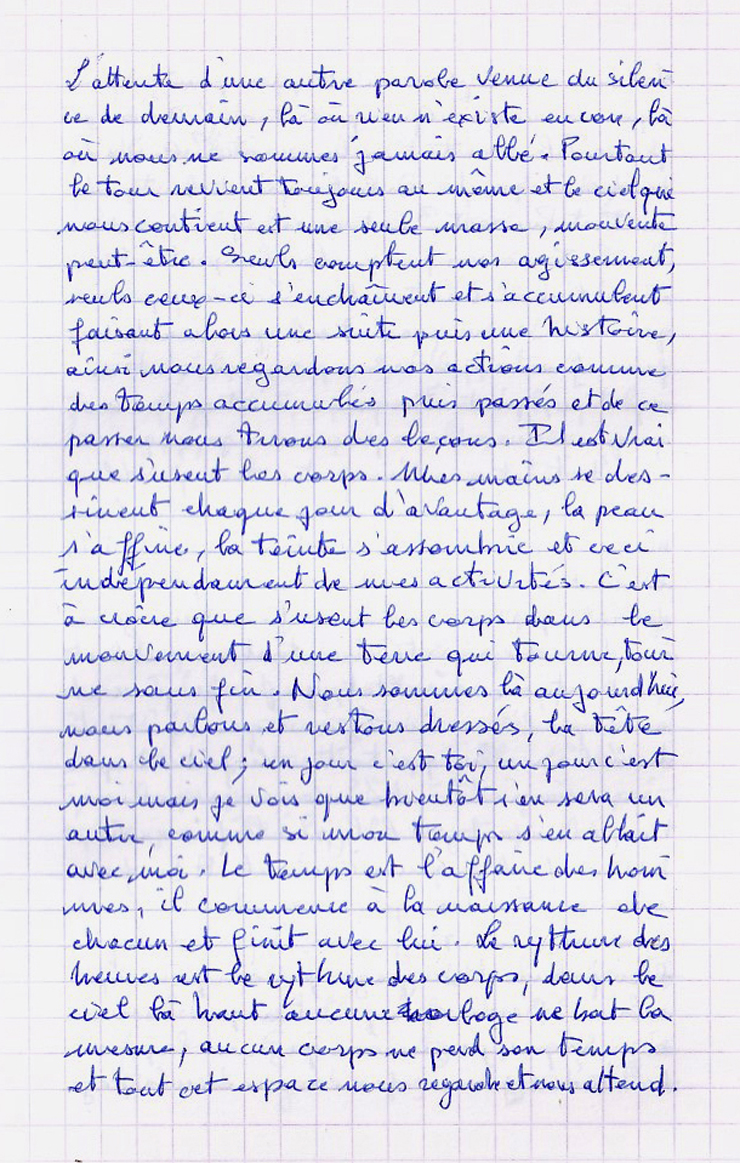 L'attente d'une autre parole venue du silen
ce de demain, là où rien n'existe encore, là
où nous ne sommes jamais allé. Pourtant
le tour revient toujours au même et le ciel qui
nous contient est une seule masse, mouvente
peut-être. Seuls comptent nos agissement,
seuls ceux-ci s'enchaînent et s'accumulent
faisant alors une suite puis une histoire,
ainsi nous regardons nos actions comme
des temps accumulés puis passés et de ce
passer nous tirons des leçons. Il est vrai
que s'usent les corps. Mes mains se des-
sinent chaque jour d'avantage, la peau
s'affine, la teinte s'assombrie et ceci
indépendament de mes activités. C'est
à croire que s'usent les corps dans le
mouvement d'une terre qui tourne, tour
ne sans fin. Nous sommes là aujourd'hui,
nous parlons et restons dressés, la tête
dans le ciel ; un jour c'est toi, un jour c'est
moi mais je vois que bientôt s'en sera un
autre, comme si mon temps s'en allait
avec moi. Le temps est l'affaire des hom
mes, il commence à la naissance de
chacun et finit avec lui. Le rythme des
heures est le rythme des corps, dans le
ciel là haut aucune horloge ne bat la
mesure, aucun corps ne perd son temps
et tout cet espace nous regarde et nous attend.